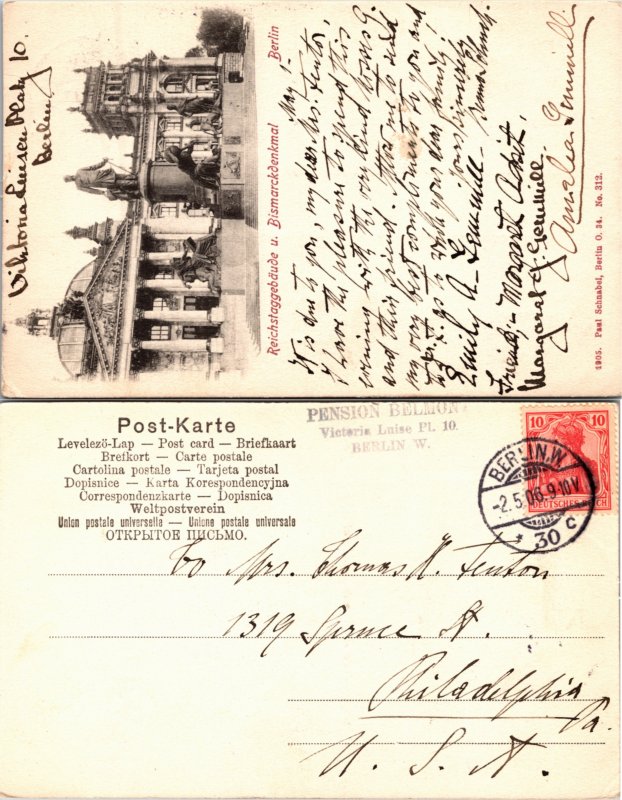 Viktoria Luisen Platz 10.
Berlin
Reichstaggebäude u. Bismarckdenkmal Berlin
May 1.
It is due to you, my dear Mrs. Fenton,
I have the pleasure to spend this
evening with the very kind
and this friend. Allow me to send
my very best compliments to you and
to your dear family!
yours sincerely
Emily A. Gemmill
Friend, Margaret
Margaret G. Gemmill
Amelia Gemmill
1905. Paul Schnabel, Berlin O. 34. No. 312.
Post-Karte
Levelezö-Lap — Post card — Briefkaart
Brefkort — Carte postale
Cartolina postale — Tarjeta postal
Dopisnice — Karta Korespondencyjna
Correspondenzkarte — Dopisnica
Weltpostverein
Union postale universelle — Unione postale universale
ОТКРЫТОЕ ПИСЬМО.
PENSION BELMONT
Victoria Luise Pl. 10.
BERLIN W.
10 10
DEUTSCHES REICH
BERLIN.W
-2.5.06.9-10V.
* 30 c
To Mrs. Thomas H. Fenton
1319 Spruce St.
Philadelphia
Pa.
U. S. A.